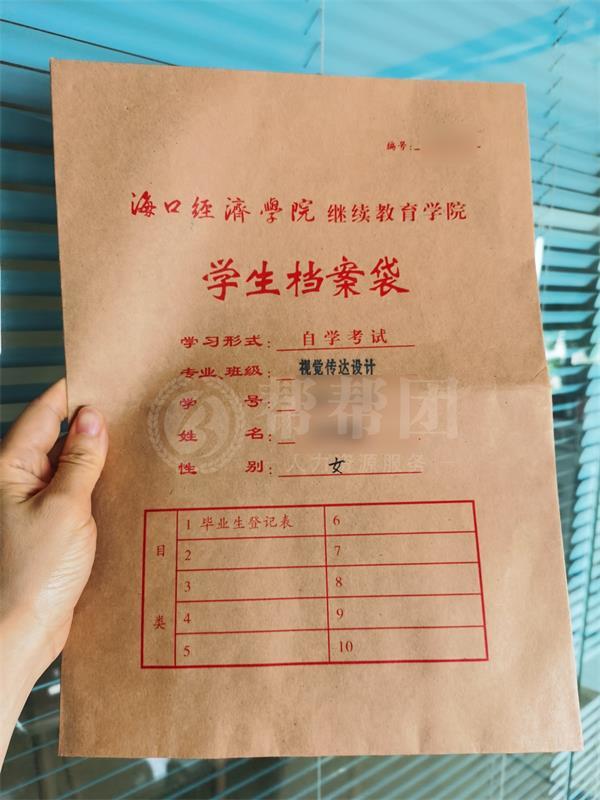 编号:
海口经濟學院 继续教育学院
学生档案袋
学习形式: 自学考试
专业班级: 视觉传达设计
学号:
帮帮团
姓名:
人力资源服务
性别: 女
目类
1 毕业生登记表 6
2 7
3 8
4 9
5 10